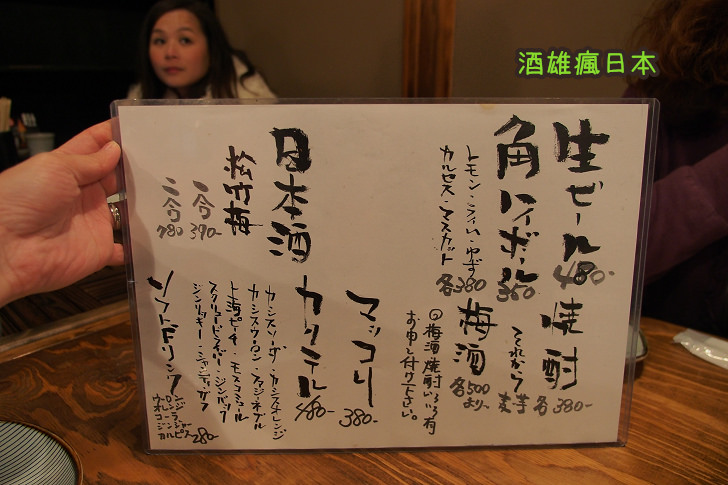 酒雄瘋日本
生ビール 480-
角ハイボール 350
レモン・ライム・ゆず
カルピス・マスカット
各380
焼酎
麦 芋 各380-
梅酒
各500より〜
梅酒 焼酎いろいろ有
お申し付け下さい。
マッコリ 380-
カクテル 480-
カシスソーダ・カシスオレンジ
カシスウーロン・ファジーネーブル
上海ピーチ・モスコミュール
スクリュードライバー・ジンバック
ジンリッキー・シャンディガフ
日本酒
松竹梅
一合 390-
二合 780
ソフトドリンク
オレンジ
ウーロン
コーラ
ジンジャー
カルピス
280-